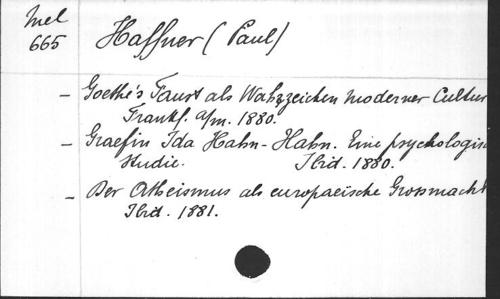 Mel
665
Haffner (Paul)
- Goethe's Faust als Wahrzeichen moderner Cultur
Frankf. a/m. 1880.
- Graefin Ida Hahn-Hahn. Eine psychologis
Studie. Ibid. 1880.
- Der Atheismus als europaeische Grossmacht
Ibid. 1881.